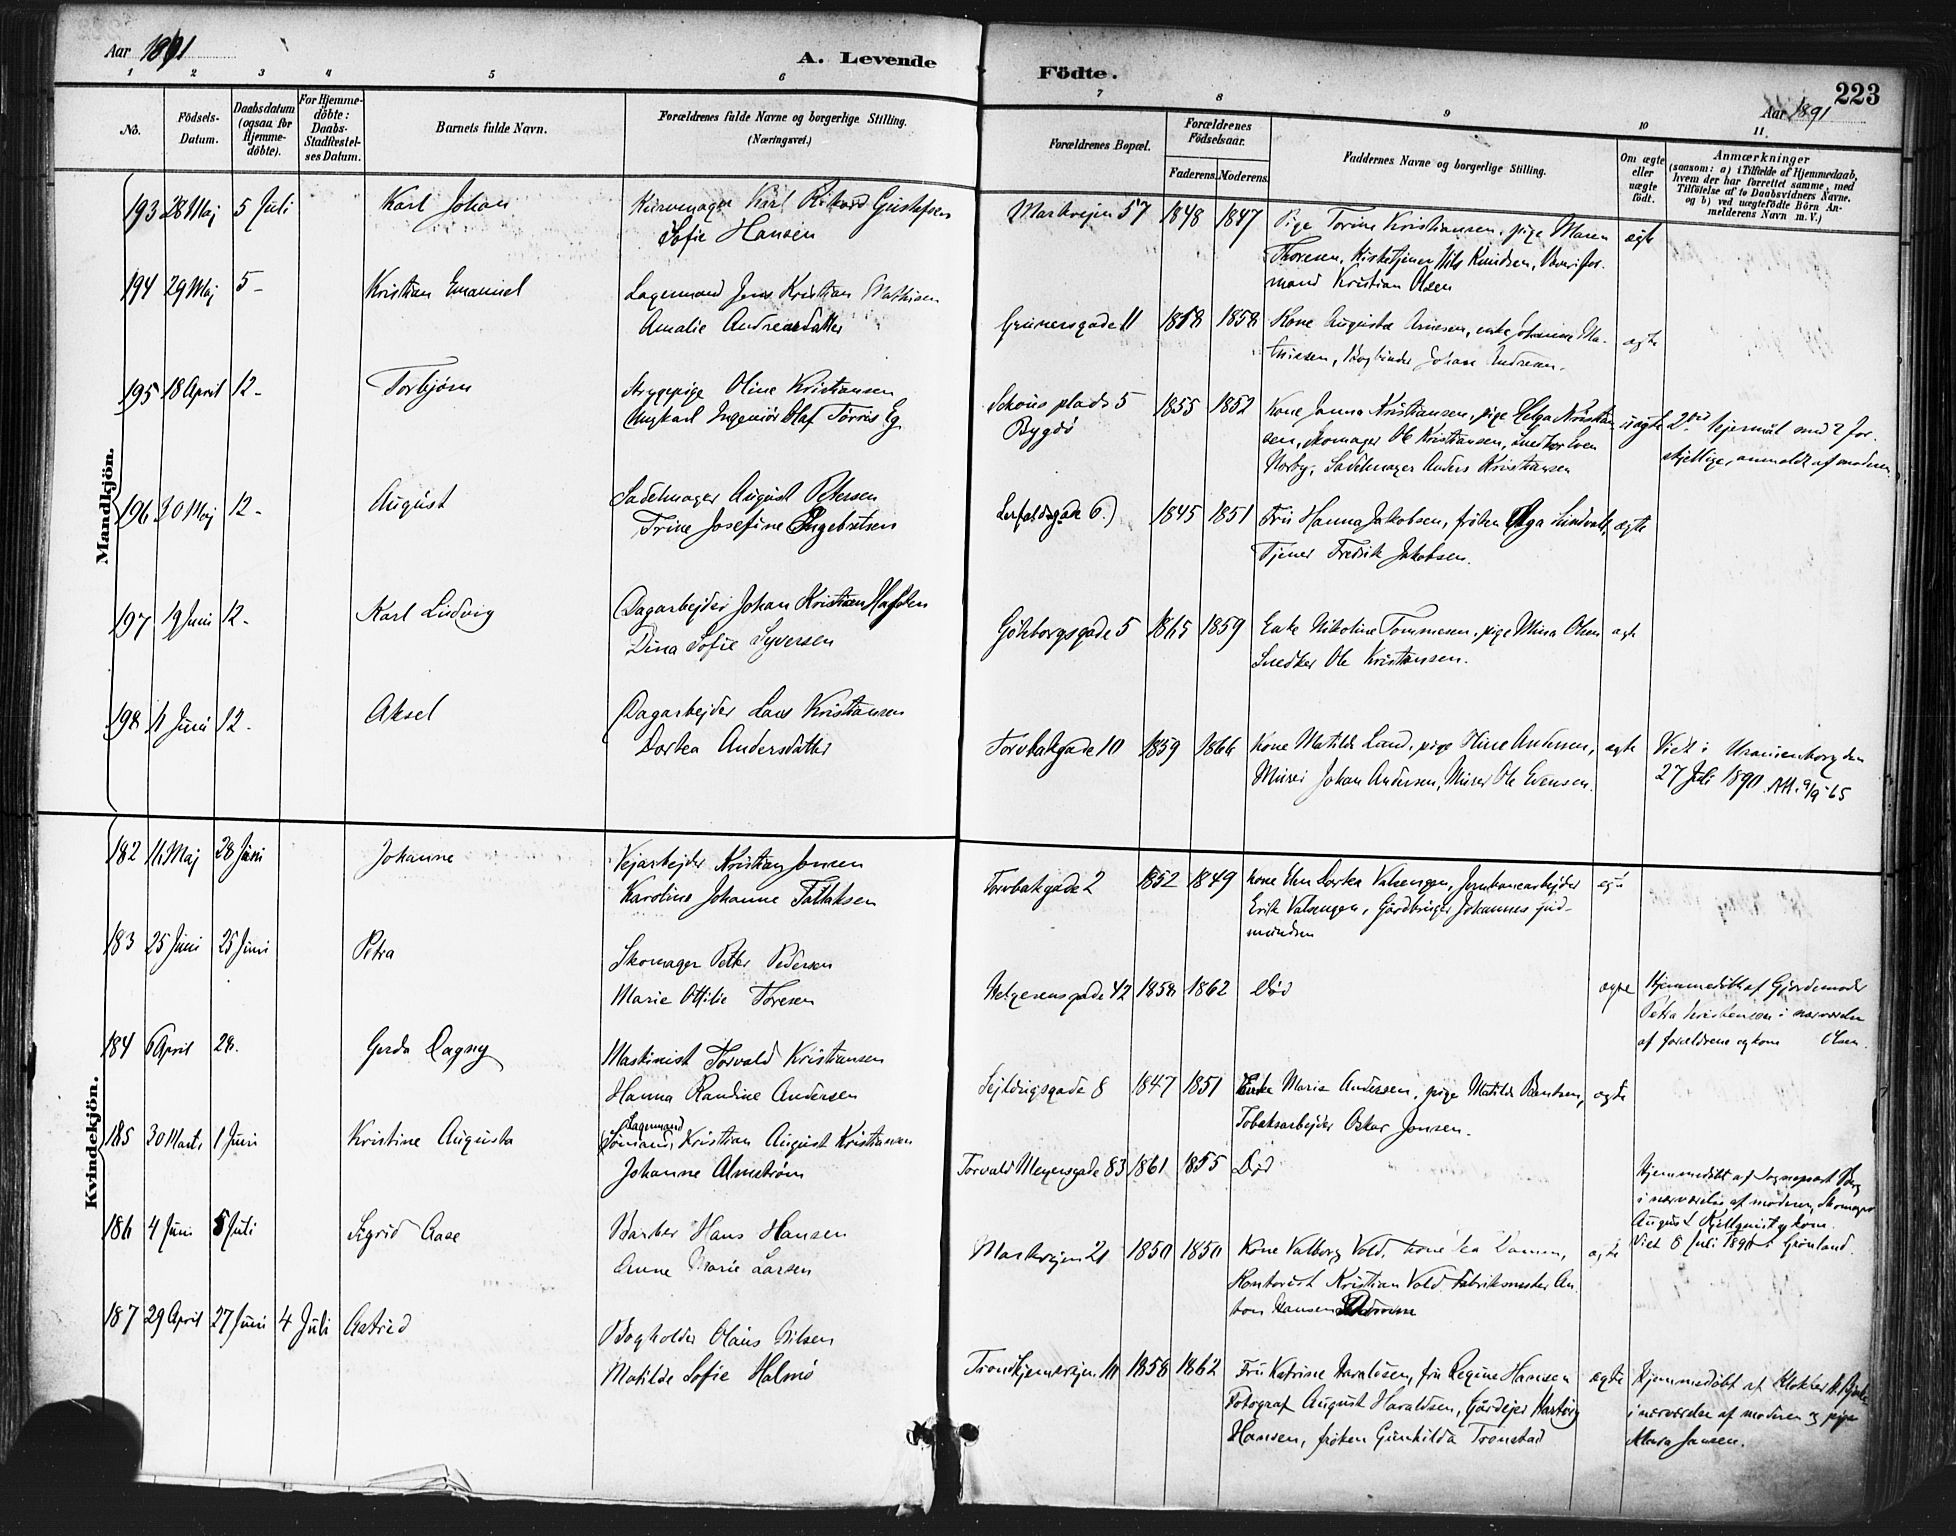 Aar 1891
A. Levende
Fødte.
223
Aar 1891
1 2 3 4 5 6
7 8 9 10 11.
No.
Födsels-
Datum.
Daabsdatum
(ogsaa for
Hjemme-
döbte).
For Hjemme-
döbte:
Daabs-
Stadfæstel-
ses Datum.
Barnets fulde Navn.
Forældrenes fulde Navne og borgerlige Stilling.
(Næringsvei.)
Forældrenes Bopæl.
Forældrenes
Födselsaar.
Faderens. Moderens.
Faddernes Navne og borgerlige Stilling.
Om ægte
eller
uægte
födt.
Anmærkninger
(saasom: a) i Tilfælde af Hjemmedaab,
hvem der har forrettet samme, med
Tilföielse af to Daabsvidners Navne.
og b) ved uægtefödte Börn An-
melderens Navn m. V.)
Mandkjön.
193 28 Maj 5 Juli Karl Johan
Kurvemager Karl Rikard Gustafsen
Sofie Hansen
Markvejen 57 1848 1847
Pige Torine Kristiansen, pige Maren
Thoresen, Nils Knudsen,
mand Kristian Olsen
ægte
194 29 Maj 5 - Kristian Emanuel
Lagermand Jens Kristian Mathisen
Amalie Andreasdatter
Grünersgade 11 1858
Kone Augusta Arnesen, enke Johanne Ma-
thisen, Bogbinder Johan Andresen.
ægte
195 18 April 12 - Torbjørn
Strygepige Oline Kristiansen
Ungkarl Ingeniør Olaf Tørris Eg
Schous plads 5
Bygdö
1855 1852
Kone Janna Kristiansen, pige Helga Kristian
sen, Skomager Ole Kristiansen, Snedker Even
Norby, Sadelmager Anders Kristiansen
uægte
2det lejermål med 2 for-
skjellige, anmeldt af moderen
196 30 Maj 12 - August
Sadelmager August Petersen
Trine Josefine Ingebretsen
Lerfaldsgade 6.) 1845 1851
Fru Hanna Jakobsen, frøken Olga Lindvall,
Tjener Fredrik Jakobsen.
ægte
197 19 Juni 12 - Karl Ludvig
Dagarbejder Johan Kristian
Dina Sofie Syversen
Göteborgsgade 5 1865 1859
Enke Nikoline Tommesen, pige Mina Olsen
Snedker Ole Kristiansen.
ægte
198 11 Juni 12 - Aksel
Dagarbejder Lars Kristiansen
Dortea Andersdatter
Torvbakgade 10 1859 1866
Kone Matilde Lund, pige Stine Andersen,
Murer Johan Andersen, Murer Ole Evensen.
ægte
Viet i Uranienborg den
27 Juli 1890. Att. 9/9-65
Kvindekjön.
182 11 Maj 28 Juni Johanne
Vejarbejder Kristian Jensen
Karoline Johanne Tallaksen
Torvbakgade 2 1852 1849
Kone Elen Dortea Valsengen, Jernbanearbejder
Erik Valsengen, Gårdbruger Johannes Gud-
mundsen
183 25 Juni 25 Juni Petra
Skomager Petter Pedersen
Marie Ottilie Toresen
Helgesensgade 42 1858 1862 Död
ægte
Hjemmedöbt af Gjordemoder
Petra Kristensen i nærværelse
af forældrene og kone Olsen.
184 6 April 28. Gerda Dagny
Maskinist Torvald Kristiansen
Hanna Randine Andersen
Sejldugsgade 8 1847 1851
Enke Marie Andersen, pige Matilde Berntsen,
Tobaksarbejder Oskar Jonsen.
ægte
185 30 Marts 1 Juni Kristine Augusta
Lagermand
Sömand, Kristian August Kristiansen
Johanne Almström
Torvald Meyersgade 83 1861 1855 Död
Hjemmedöbt af Sogneprest
i nærværelse af moderen, Skomager
August Kjellquist og kone.
Viet 8 Juli 1890 i Grönland.
186 4 Juni 5 Juli Sigrid Aase
Barber Hans Hansen
Anne Marie Larsen
Markvejen 21 1850 1850
Kone Valborg Vold, kone
Kontorist Kristian Vold, Fabrikmester An-
ton Hansen
ægte
187 29 April 27 Juni 4 Juli Astrid
Bogholder Olaus Nilsen
Matilde Sofie Halmö
Trondhjemsvejen 1858 1862
Fru Katrine Haraldsen, fru Regine Hansen
Fotograf August Haraldsen, Gårdejer
Hansen, frøken Gunhilda Tronstad
ægte
Hjemmedöbt af Klokker
i nærværelse af moderen og pige
Jansen.